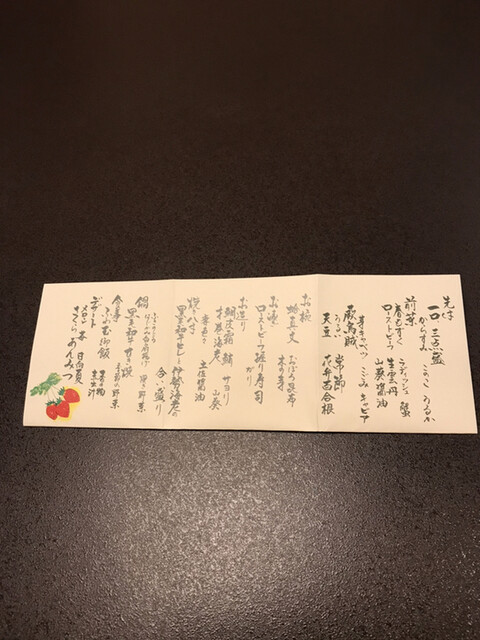 先は
一口 三点盛
からすみ このこ うるか
前菜
春もずく ラディッシュ 蟹
ローストビーフ 生雲丹
山葵醤油
芽キャベツ こごみ キャビア
蕨烏賊 常節
うるい
天豆 花弁百合根
お椀
蛤真丈 おぼろ昆布
木の芽
お凌ぎ
ローストビーフ握り寿司
がり
お造り
鯛皮霜 鮪 サヨリ
才巻海老 山葵
土佐醤油
焼き八寸
黒毛和牛ヒレ 伊勢海老の
合い盛り
鍋
黒毛和牛すき焼
季節の野菜
食事
御飯 香の物
赤出汁
デザート
メロン 苺 日向夏
さくら あんみつ